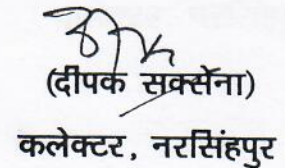 (दीपक सक्सेना)
कलेक्टर, नरसिंहपुर